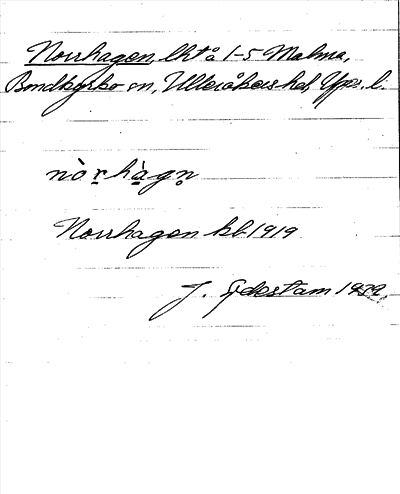 Norrhagen, lht å 1-5 Malma,
Bondkyrko sn, Ulleråkers hd, Upps. l.
nò r̤hà̤gn̥
Norrhagen kb 1919
J. Sjdestam 1932.